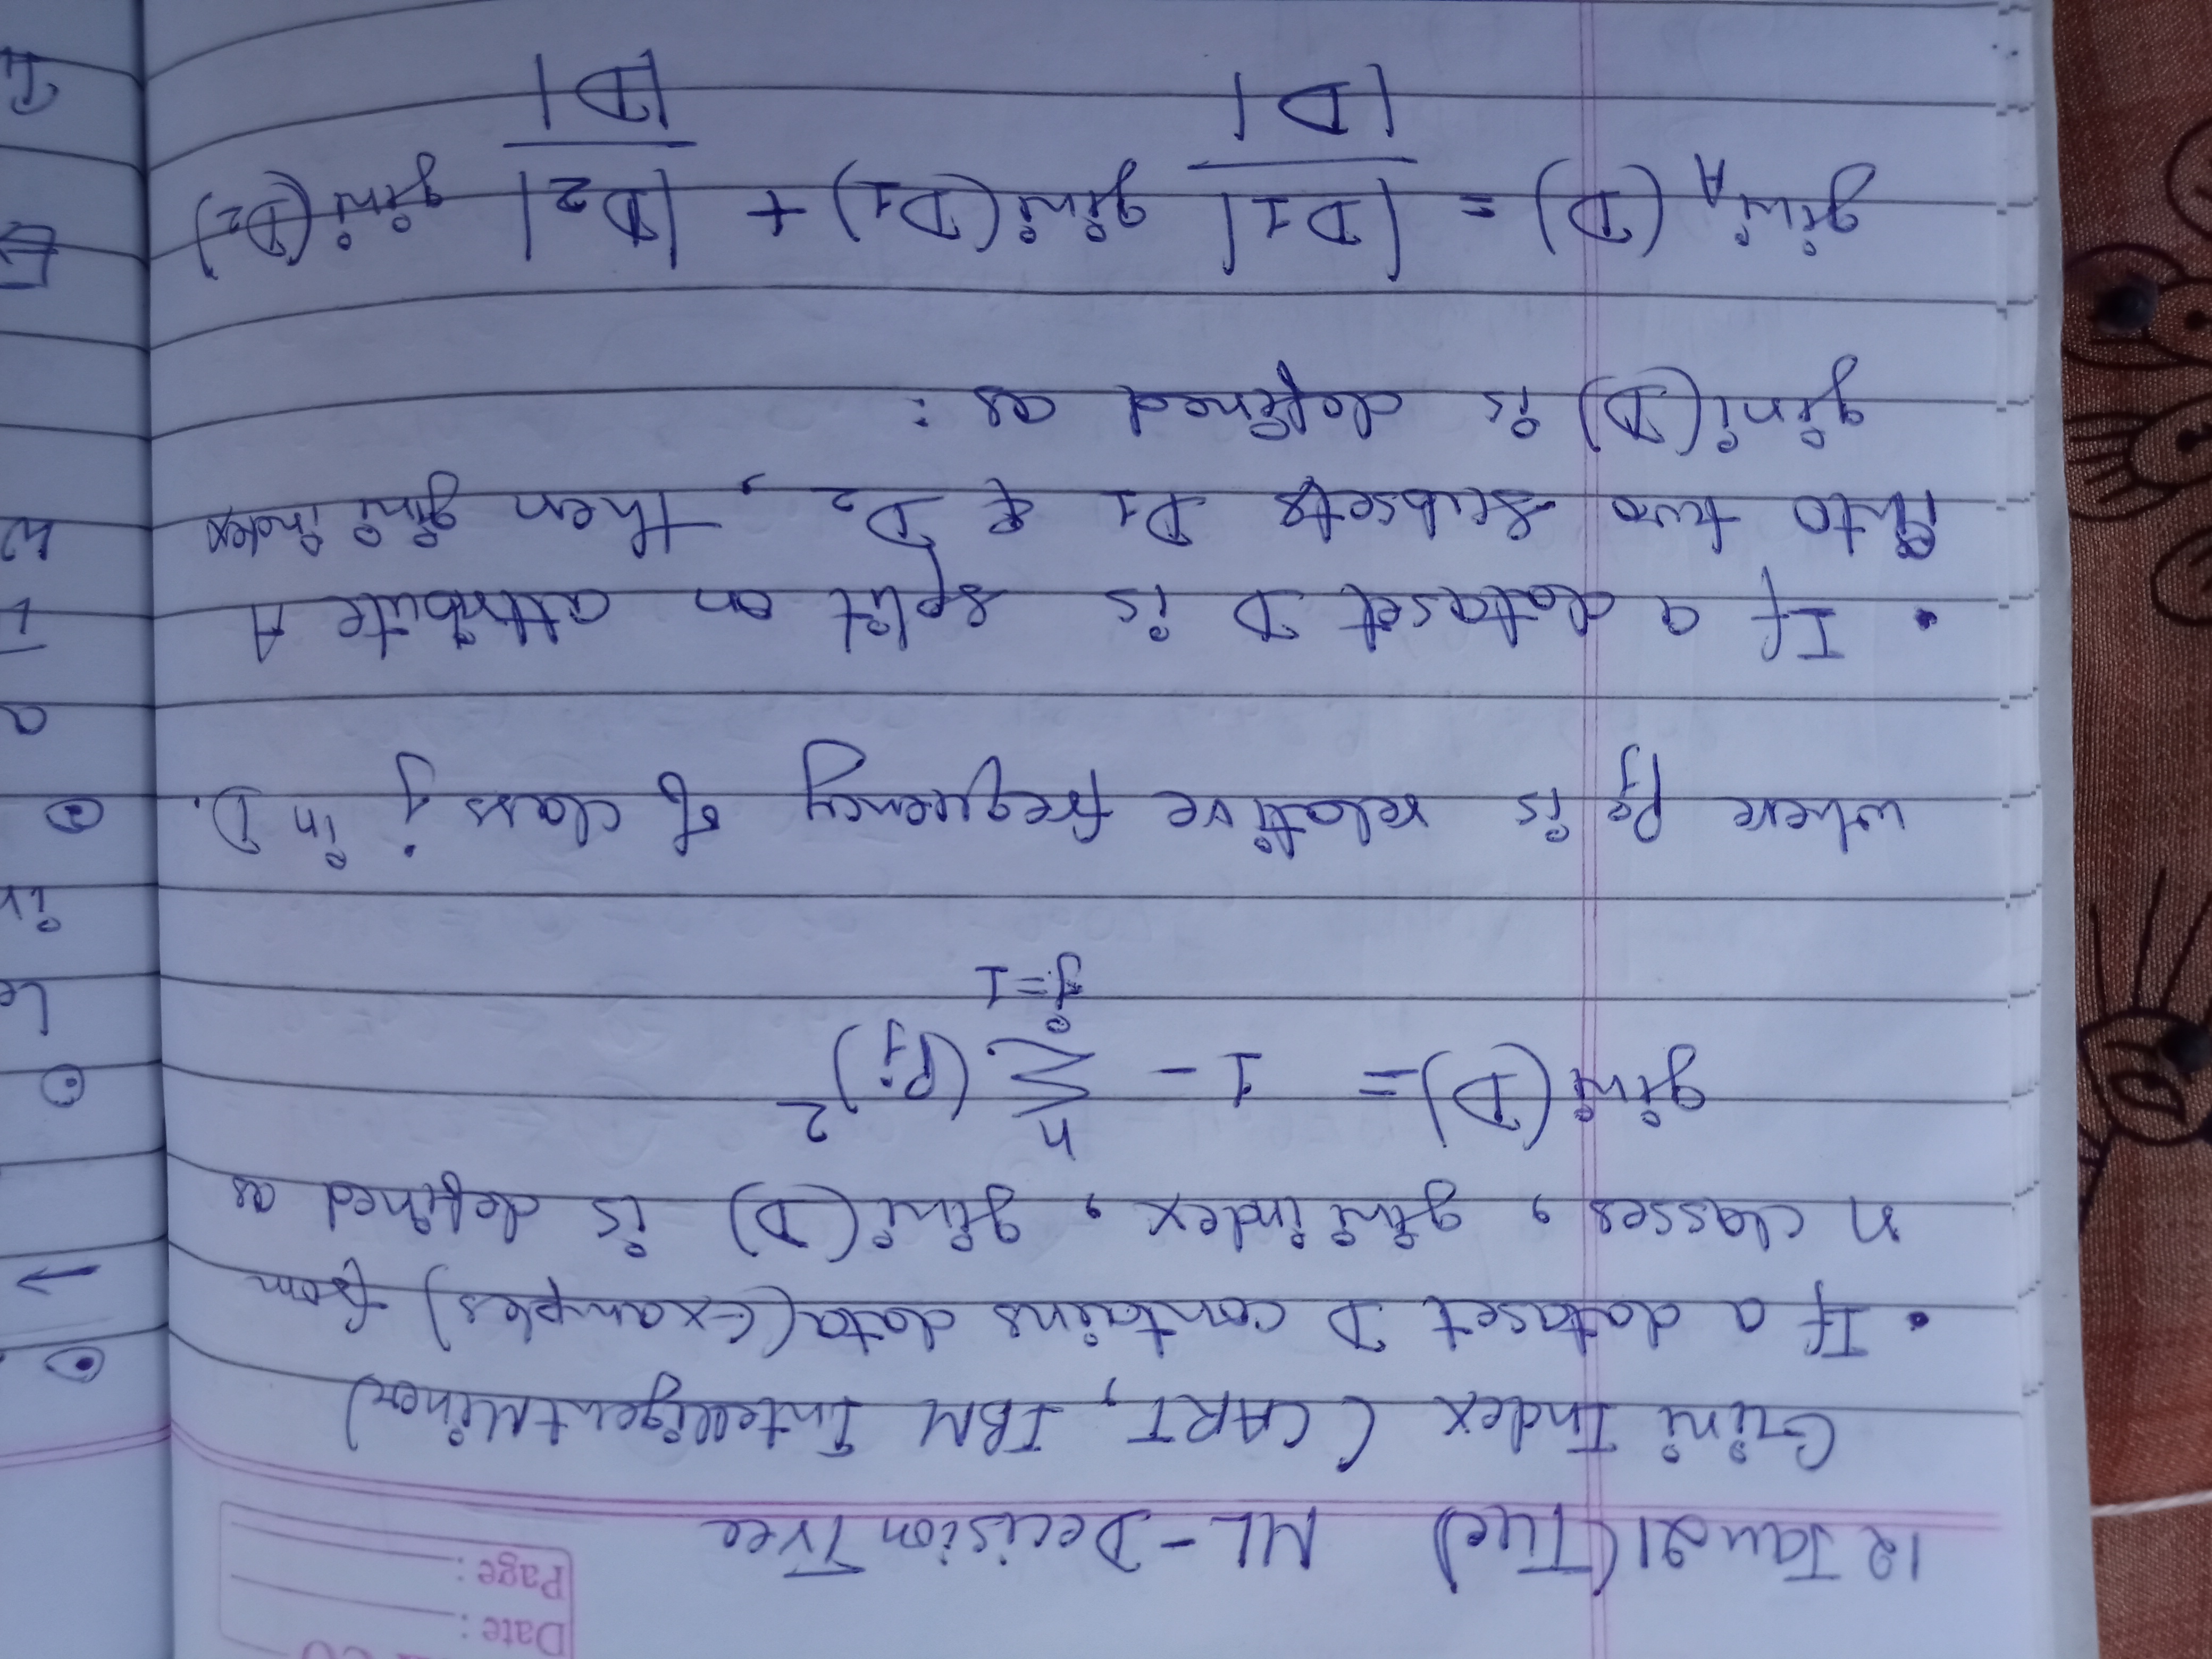 Date :
Page :
12 Jan 21 (Tue) ML - Decision Tree
Gini Index (CART, IBM Intelligent Miner)
• If a dataset D contains data (Examples) from
n classes, gini index, gini(D) is defined as
gini(D) = 1 - n∑j=1 (Pj)²
where Pj is relative frequency of class j in D.
• If a dataset D is split on attribute A
into two subsets D1 & D2, then gini index
gini(D) is defined as :
giniA(D) = |D1|/|D| gini(D1) + |D2|/|D| gini(D2)